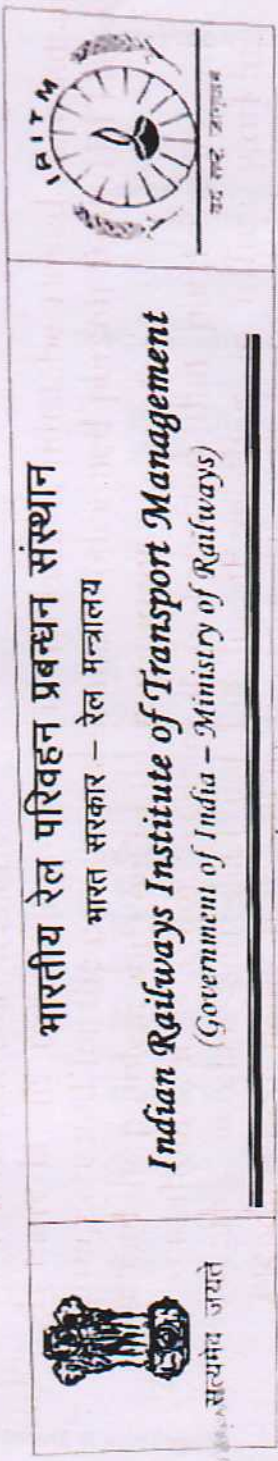 सत्यमेव जयते
भारतीय रेल परिवहन प्रबन्धन संस्थान
भारत सरकार – रेल मन्त्रालय
Indian Railways Institute of Transport Management
(Government of India – Ministry of Railways)
IRITM